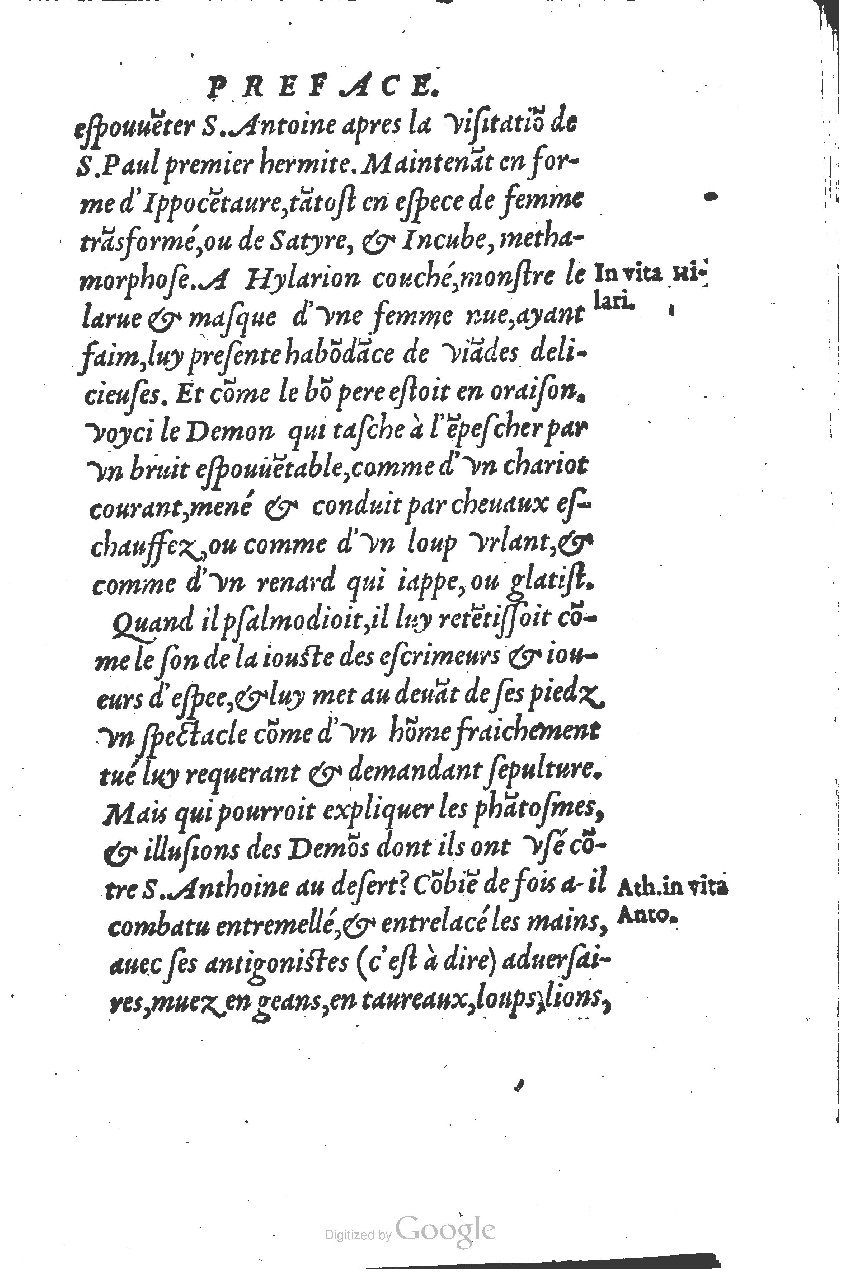 PREFACE.
eſpouuẽter S. Antoine apres la viſitatiõ de
S. Paul premier hermite. Maintenãt en for-
me d'Ippocẽtaure, tãtoſt en eſpece de femme
trãsformé, ou de Satyre, & Incube, metha-
morphoſe. A Hylarion couché, monſtre le
In vita Hi-
lari.
larue & maſque d'vne femme nue, ayant
faim, luy preſente habõdãce de viãdes deli-
cieuſes. Et cõme le bõ pere eſtoit en oraiſon.
voyci le Demon qui taſche à l'ẽpeſcher par
vn bruit eſpouuẽtable, comme d'vn chariot
courant, mené & conduit par cheuaux eſ-
chauffez, ou comme d'vn loup vrlant, &
comme d'vn renard qui iappe, ou glatiſt.
Quand il pſalmodioit, il luy retẽtiſſoit cõ-
me le ſon de la iouſte des eſcrimeurs & iou-
eurs d'eſpee, & luy met au deuãt de ſes piedz
vn ſpectacle cõme d'vn hõme fraichement
tué luy requerant & demandant ſepulture.
Mais qui pourroit expliquer les phãtoſmes,
& illuſions des Demõs dont ils ont vſé cõ-
tre S. Anthoine au deſert? Cõbiẽ de fois a-il
Ath. in vita
Anto.
combatu entremellé, & entrelacé les mains,
auec ſes antigoniſtes (c'eſt à dire) aduerſai-
res, muez en geans, en taureaux, loups, lions,
Digitized by Google